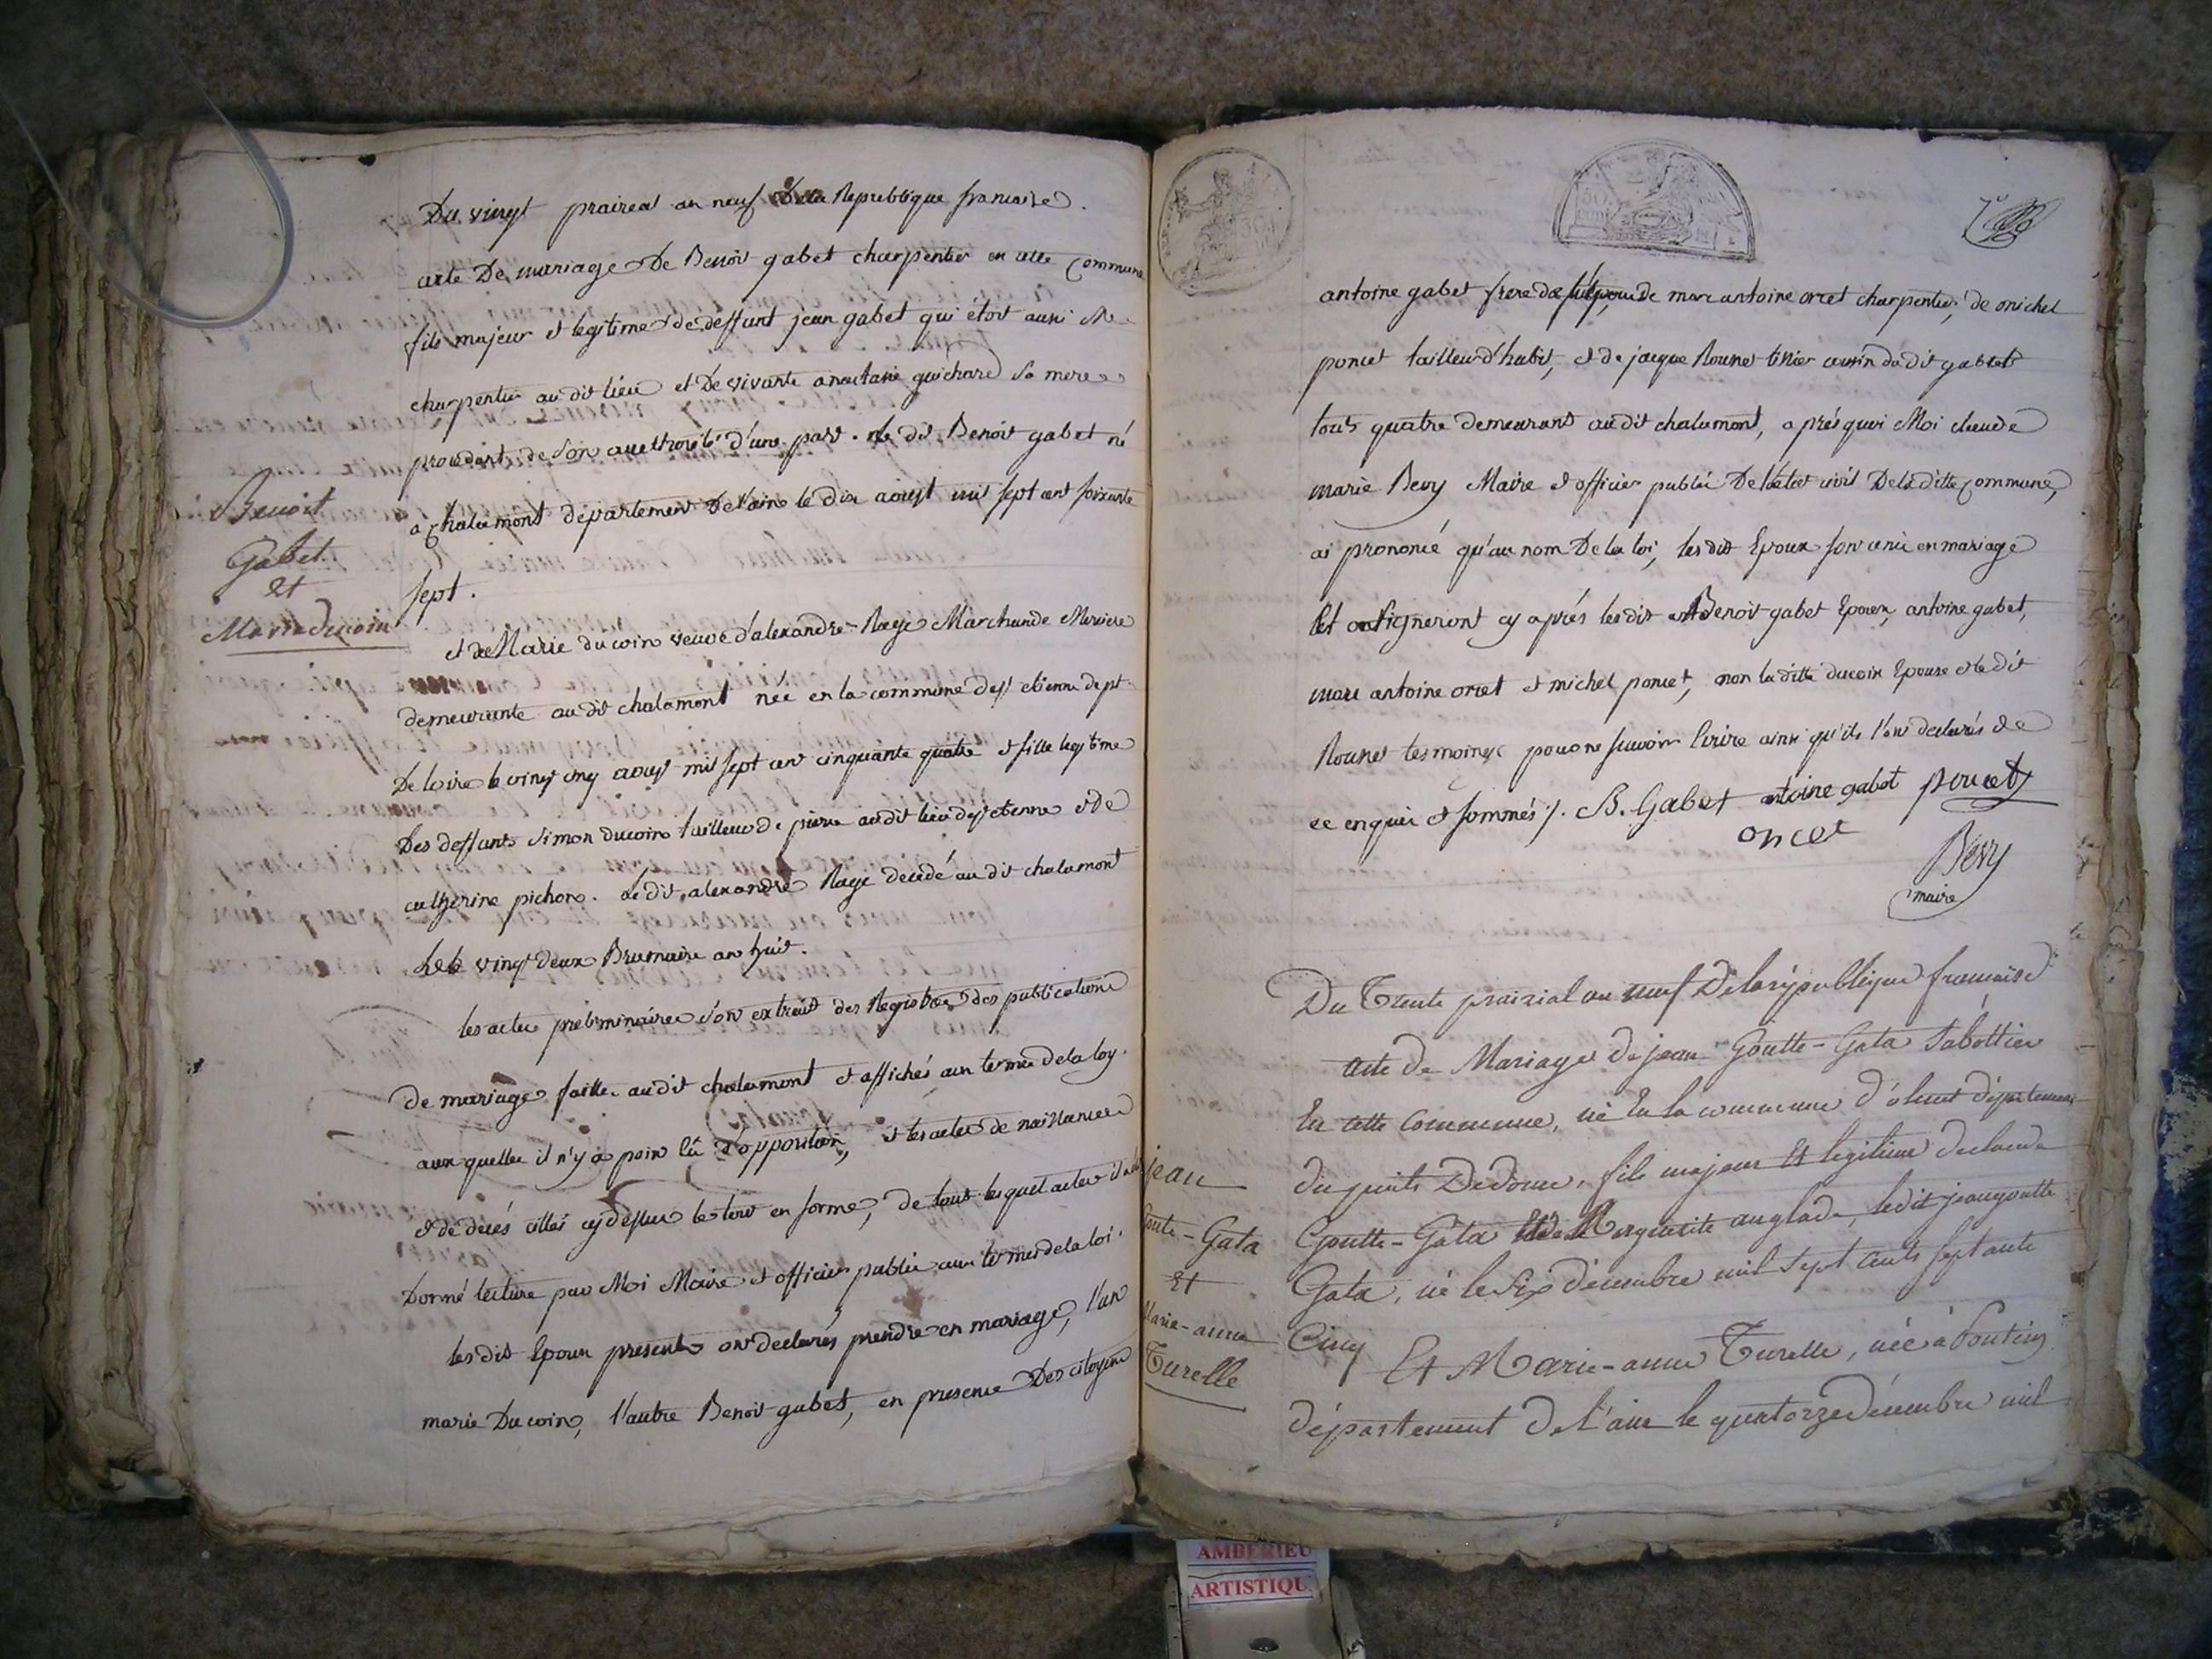 Du vingt prairéal an neuf De la Republique francaise.
acte De mariage De Benoit gabet charpentier en cette Commune
fils majeur et legitime de deffunt jean gabet qui étoit aussi Me
charpentier au dit lieu et De vivante anastasie guichard sa mere
procedant de son authorité d'une part. le dit Benoit gabet né
a chalamont département De l'ain le dix aoust mil sept cent soixante
sept.
Benoit
Gabet
et
Marie ducoin
et de Marie du coin veuve d'alexandre Rage Marchande Merciere
demeurante au dit chalamont née en la commune de st etienne dept
De loire le vingt cinq aoust mil sept cent cinquante quatre et fille legitime
Des deffunts Simon ducoin tailleur de pierre au dit lieu de st etienne et de
catherine pichon. le dit alexandre Rage décedé au dit chalamont
le vingt deux Brumaire an huit.
les actes preliminaires sont extraits des Registres des publications
de mariage faitte au dit chalamont et affichés aux termes de la loy.
aux quelles il n'y a point eû d'opposition, et les actes de naissances
et de décés celles cy dessus le tout en forme, de tous les quel actes il a été
Donné lecture par Moi Maire et officier public aux termes de la loi.
les dit Epoux presents ont declarés prendre en mariage, l'un
marie Ducoin, l'autre Benoit gabet, en presence Des citoyens
antoine gabet frere de de marc antoine orcet charpentier, de michel
poncet tailleur d'habit, et de jacque Rounet cousin du dit gabet
tous quatre demeurants au dit chalamont, aprés quoi Moi claude
marie Bevy Maire et officier public De l'état civil De la ditte commune,
ai prononcé qu'au nom De la loi, les dit Epoux sont unie en mariage
Et ont signeront cy aprés les dit Benoit gabet Epoux, antoine gabet,
marc antoine orcet et michel poncet, non la ditte ducoin Epouse et le dit
Rounet tesmoins pour ne savoir Ecrire ainsi qu'ils l'ont declarés de
ce enquis et sommés /. B. Gabet antoine gabet poncet
orcet
Bevy
maire
Du Trente prairial an neuf De la république francaise
acte De Mariage De jean Goutte-Gata Sabottier
En cette Commune, né En la commune d'olmet département
du puits De Dome, fils majeur Et legitime de
Goutte-Gata Et de Marguerite anglade, ledit jean goutte
Gata, né le Six décembre mil Sept cents Septante
Cinq Et Marie-anne Turelle, née à
département De l'ain le quatorze décembre mil
jean
Goute-Gata
Et
Marie-anne
Turelle
AMBERIEU
ARTISTIQU